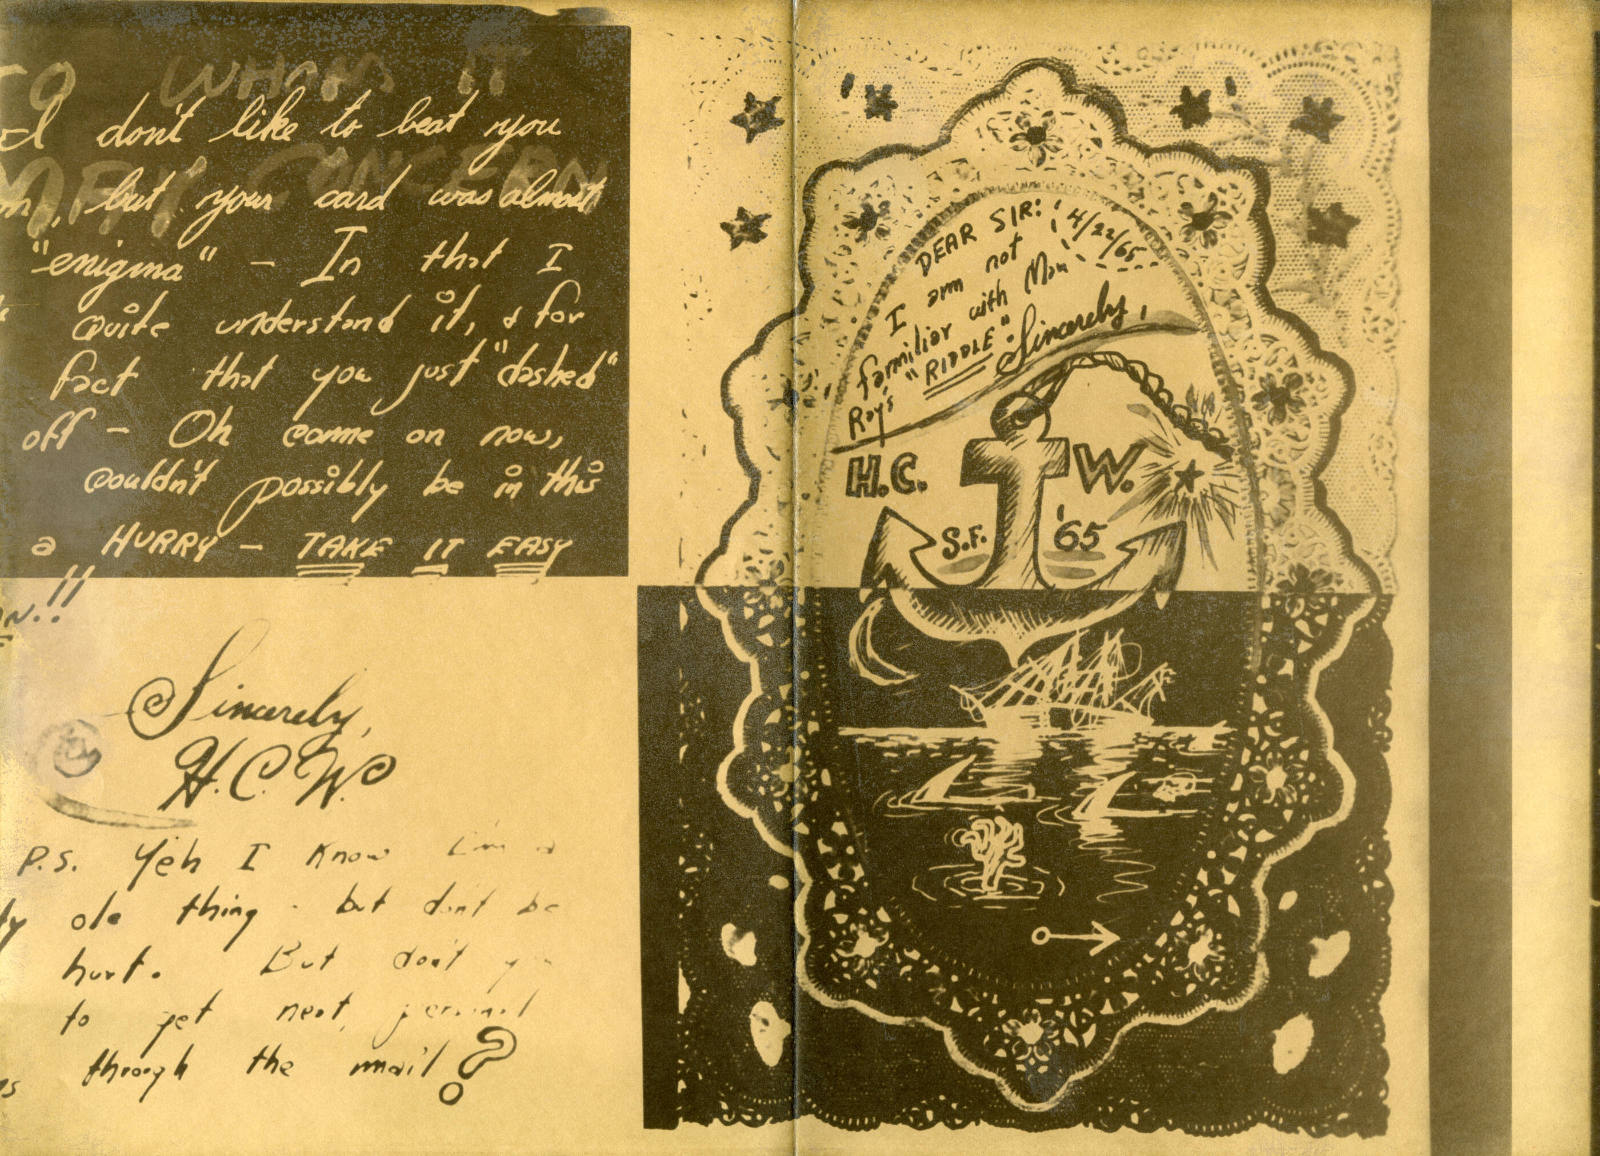 TO WHOM IT
MAY CONCERN
I don't like to beat you
, but your card was almost
"enigma" - In that I
quite understand it, & for
fact that you just "dashed"
off - Oh come on now,
couldn't possibly be in this
a HURRY - TAKE IT EASY
!!
Sincerely,
H.C.W.
P.S. Yeh I know I'm a
ole thing - but don't be
hurt. But don't you
to get neat, personal
through the mail?
DEAR SIR: 4/22/65
I am not
familiar with Man
Ray's "RIDDLE" Sincerely,
H.C. W.
S.F. '65